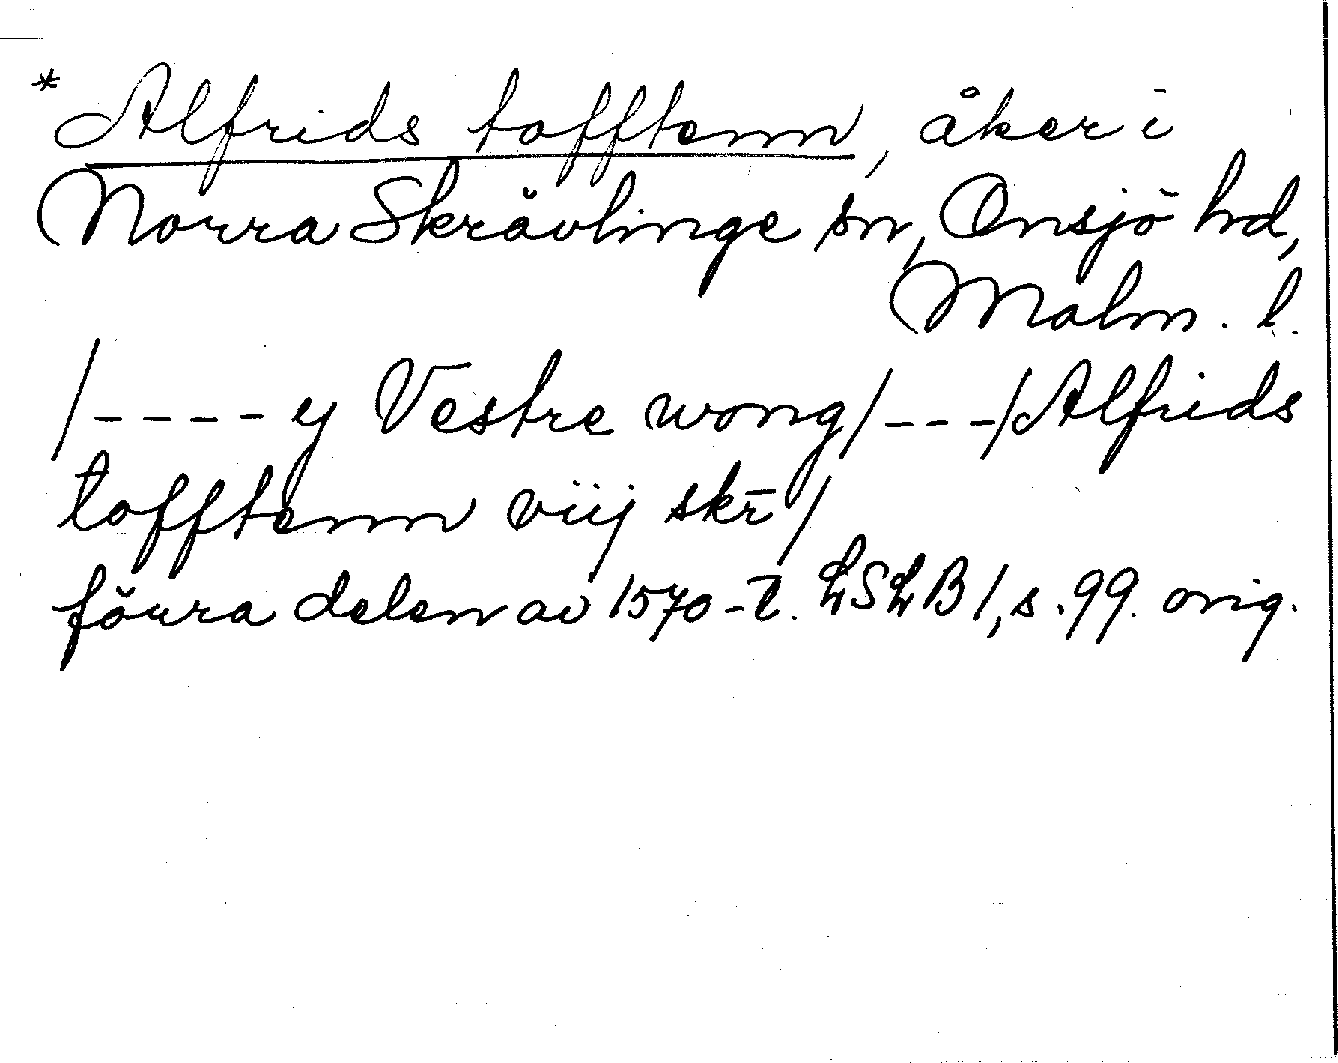 * Alfrids tofftenn, åker i
Norra Skrävlinge sn, Onsjö hd,
Malm. l.
/---- ij Vestre wong/---/Alfrids
tofftenn viij skr̄/
förra delen av 1570-t. LSLB 1, s. 99. orig.